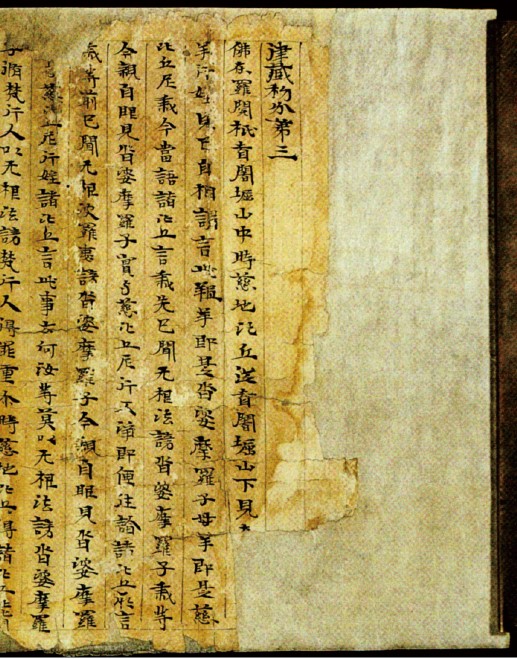 律藏初分第三
佛在羅閱祇耆闍堀山中時慈地比丘從耆闍堀山下見大
羊共婬見已自相謂言此羝羊即是沓婆摩羅子母羊即是慈
比丘尼我今當語諸比丘言我先已聞无根法謗沓婆摩羅子我等
今親自眼見沓婆摩羅子實与慈比丘尼行不淨即便往詣諸比丘所言
我等前已聞无根波羅夷謗沓婆摩羅子今親自眼見沓婆摩羅
慈比丘尼行婬諸比丘言此事云何汝等莫以无根法謗沓婆摩羅
子脩梵行人以无根法謗梵行人得罪重尒時慈地比丘得諸比丘